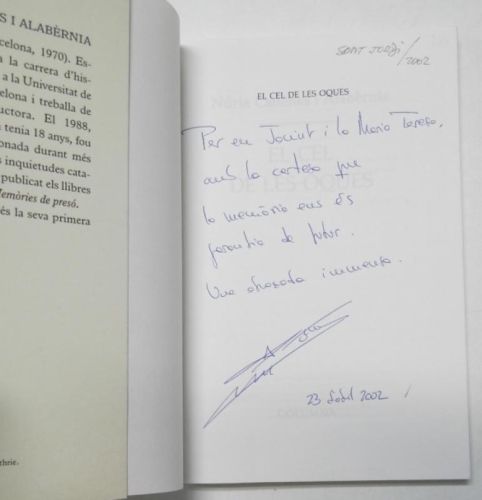 S I ALABÈRNIA
celona, 1970). Es-
a la carrera d'his-
a la Universitat de
elona i treballa de
uctora. El 1988,
tenia 18 anys, fou
onada durant més
inquietuds cata-
publicat els llibres
Memòries de presó.
és la seva primera
thrie.
SANT JORDI/2002
EL CEL DE LES OQUES
Per en Jacint i la Maria Teresa,
amb la certesa que
la memòria ens és
garantia de futur.
Una abraçada immensa.
23 d'abril 2002
EL CEL
DE LES OQUES
COLUMNA